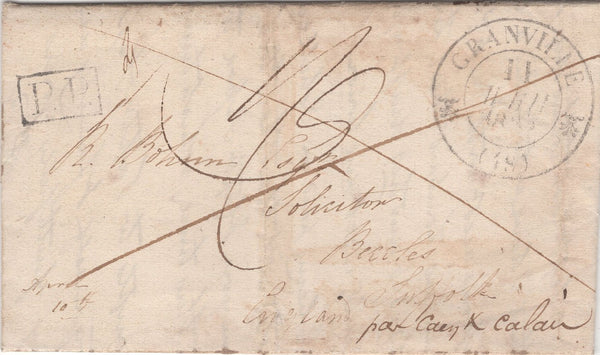 P.P.
GRANVILLE
11
(48)
R. Bohun Esqr
Solicitor
Beccles
Suffolk
England
par Caen & Calais
April
10th